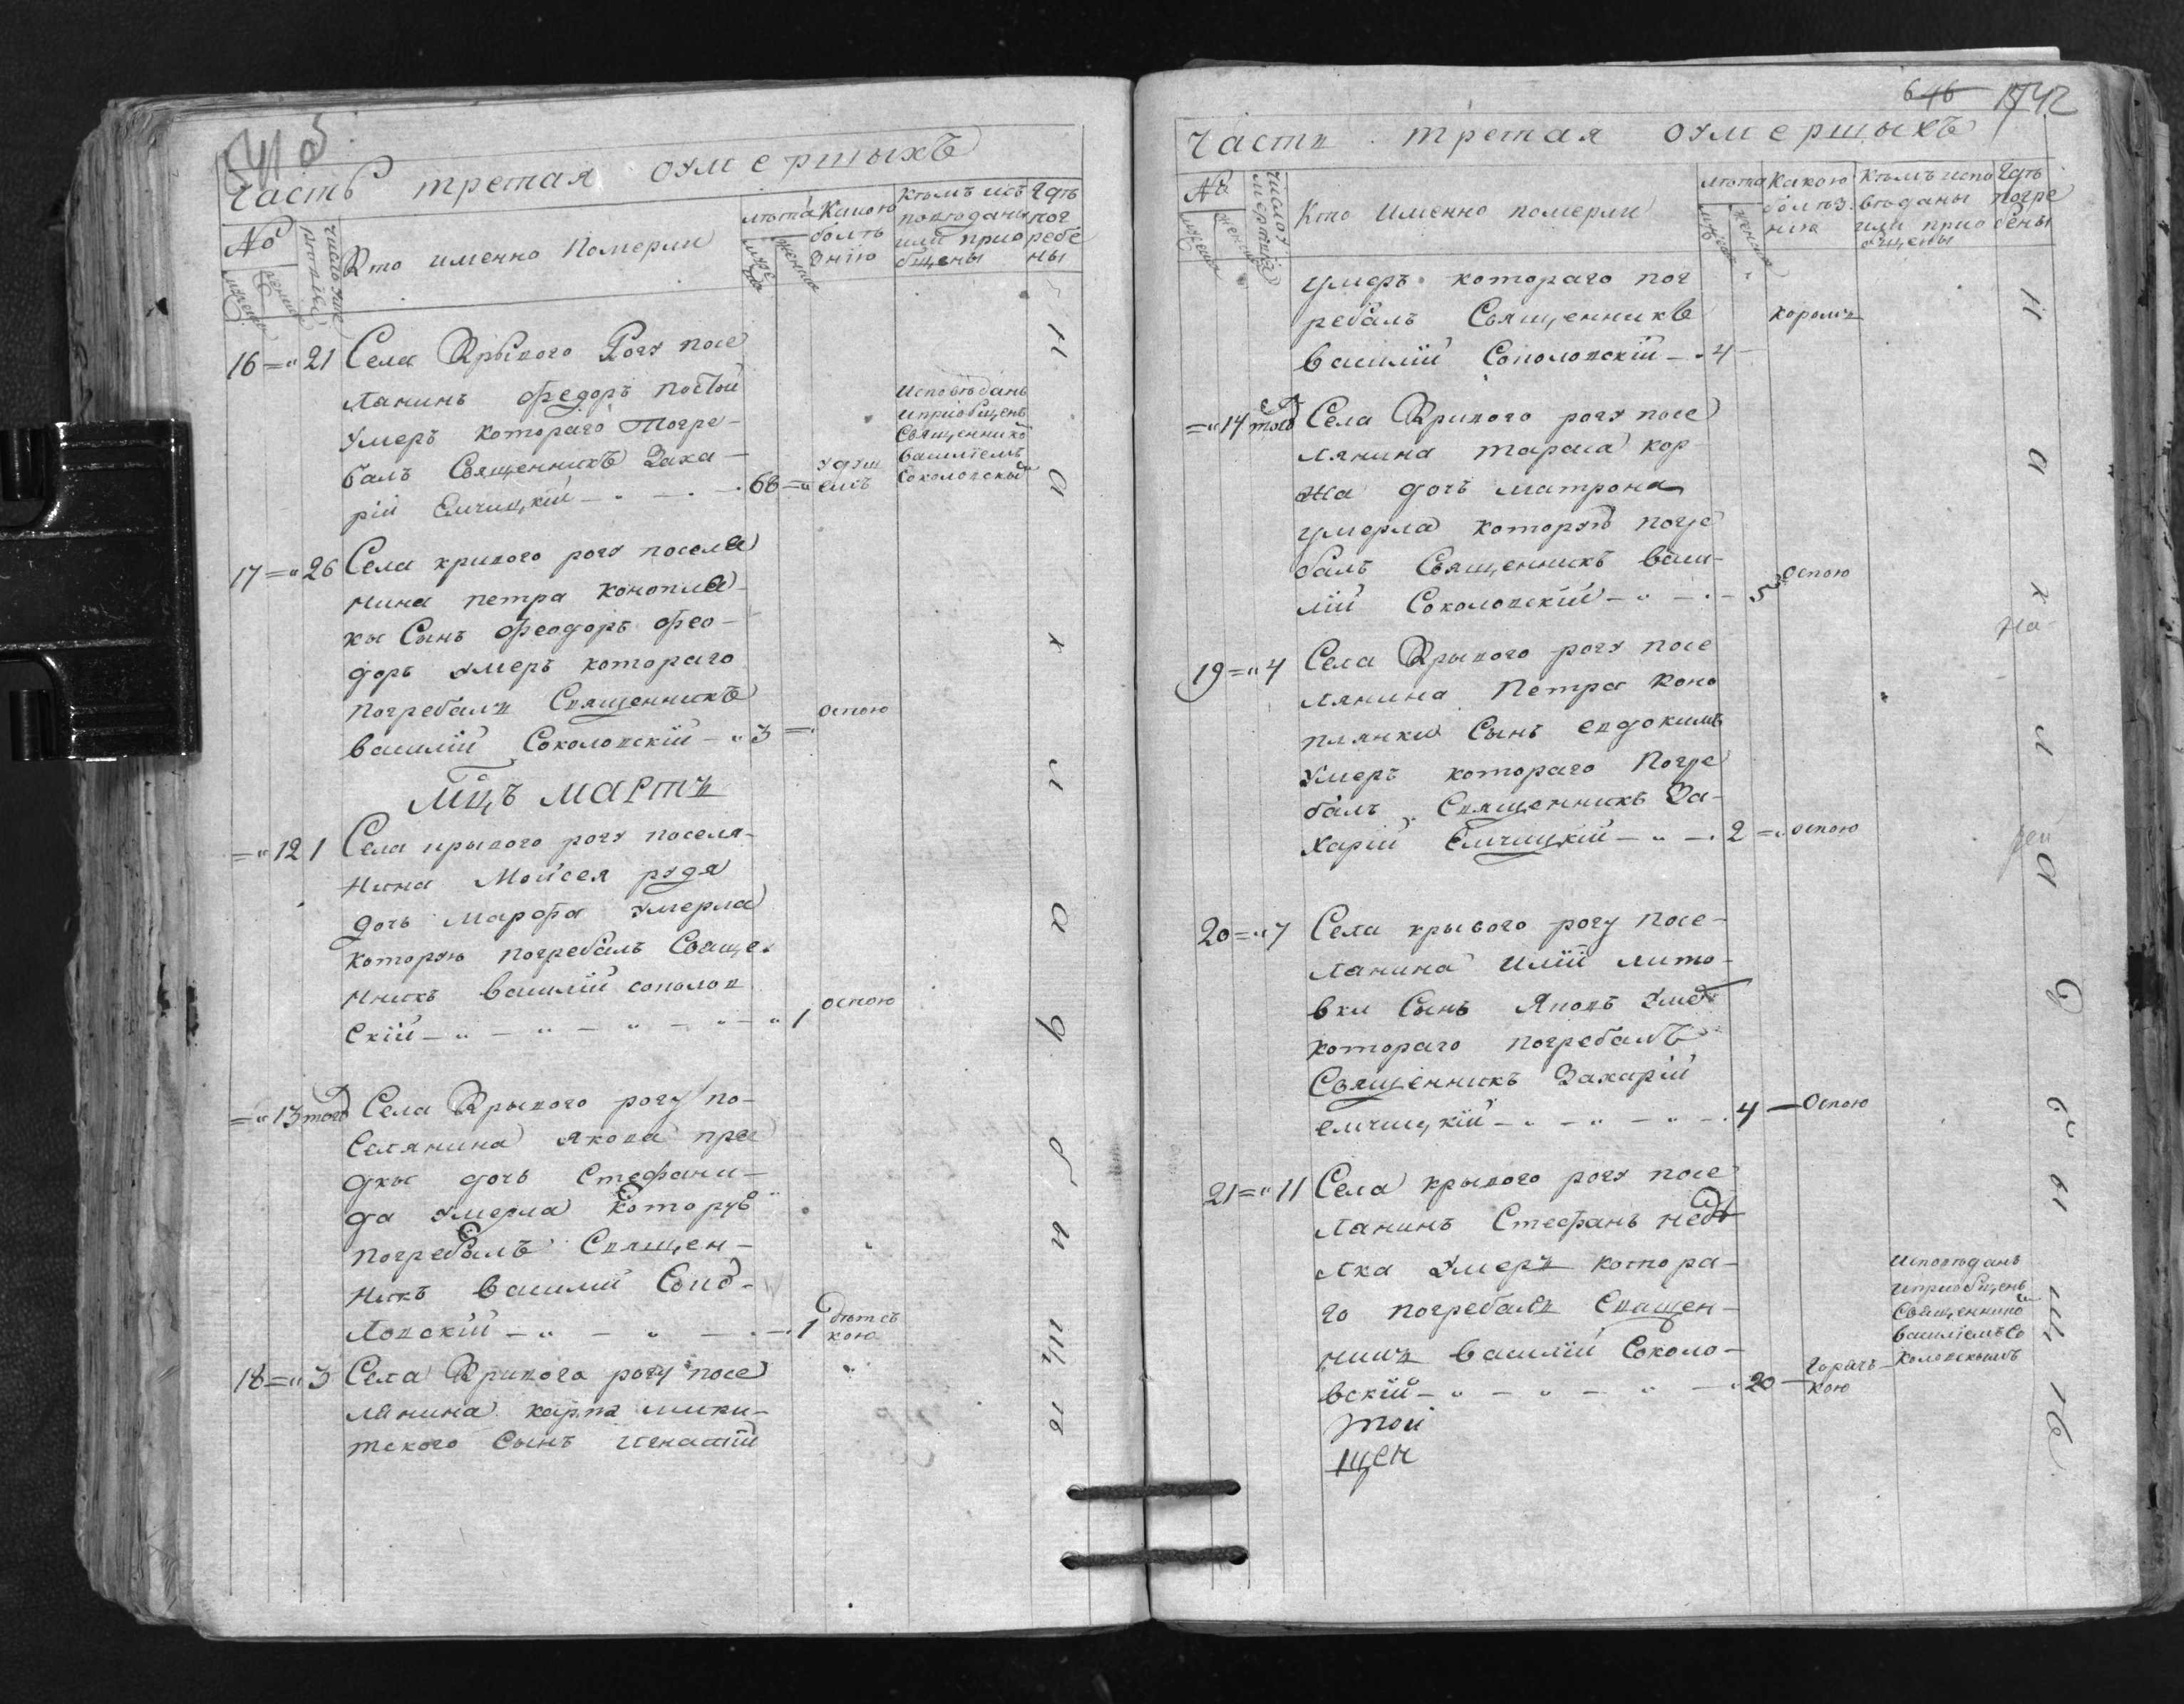 Часть третая оумершыхъ
№
Кто именно Померли
лѣта
Какою болѣзнію
Кѣмъ исповѣданы или приобщены
Гдѣ погребены
16 = " 21 Села Крывого Рогу посе
лянинъ Федоръ Постой
умеръ котораго Погре-
балъ Священникъ Заха-
рій Емчицкій 66 = "
удушемъ
Исповѣданъ
и приобщенъ
Священникомъ
Василіемъ
Соколовскымъ
17 = " 26 Села кривого рогу поселя
нина петра конопля-
кы Сынъ Феодоръ Фео-
доръ умеръ котораго
погребалъ Священникъ
Василій Соколовскій - " 3 = .
оспою
Мцъ Мартъ
= " 12 1 Села крывого рогу поселя-
нина Мойсея рудя
дочь Марфа умерла
которую погребалъ Свяще-
нникъ Василій соколов
скій - " - " - " - " 1
оспою
= " 13 того Села Крывого рогу по-
селянина Якова
дкы дочь Стефани-
да умерла которую
погребалъ Священ-
никъ Василій Соко-
ловскій - " - " - 1
дѣтсъ
кою
18 = " 3 Села Кривого рогу посе
лянина карпа мики-
тского Сынъ игнатій
На кладбыщѣ
646 542
Часть третая оумершыхъ
№
Кто Именно померли
лѣта
Какою болѣзнію
Кѣмъ исповѣданы или приобщены
Гдѣ погребены
умеръ котораго пог
ребалъ Священникъ
Василій Соколовскій - " 4 -
корью
= " 14 того Села Кривого рогу посе
лянина тараса кор-
жа дочь матрона
умерла которую погре
балъ Священникъ васи-
лій Соколовскій - " - " - 3
оспою
19 = " 4 Села Крывого рогу посе
лянина Петра коно
плянки Сынъ евдокимъ
умеръ котораго Погре
балъ Священникъ За-
харій Емчицкій - " - . 2 = "
оспою
20 = " 7 Села крывого рогу посе-
лянина илїи лито-
вки Сынъ Яковъ умеръ
котораго погребалъ
Священникъ Захарій
емчицкій - " - " - " - . 4 -
Оспою
21 = " 11 Села крывого рогу посе
лянинъ Стефанъ недо
лка умеръ котора-
го погребалъ Священ-
никъ Василій Соколо-
вскій - " - " - " - " 20 -
горячь-
кою
Исповѣданъ
и приобщенъ
Священникомъ
Василіемъ Со
коловскымъ
той
щен
На кладбыщѣ